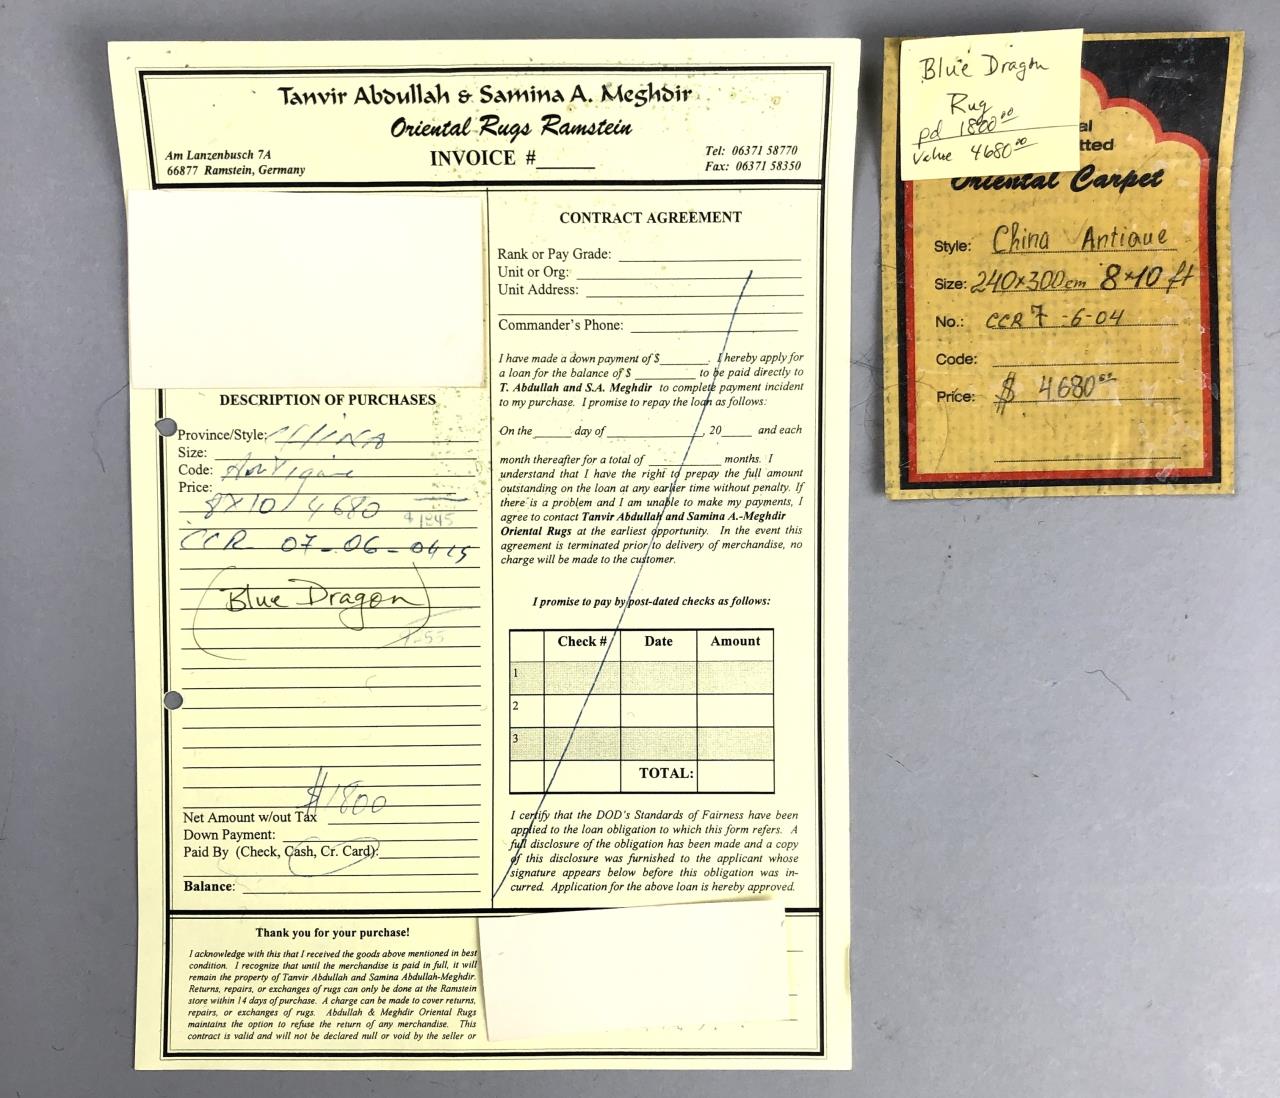 Tanvir Abdullah & Samina A. Meghdir
Oriental Rugs Ramstein
Am Lanzenbusch 7A
66877 Ramstein, Germany
INVOICE #
Tel: 06371 58770
Fax: 06371 58350
DESCRIPTION OF PURCHASES
Province/Style: CHINA
Size:
Code: Antique
Price:
8X10 / 4680
CCR 07-06-04
(Blue Dragon)
$1800
Net Amount w/out Tax
Down Payment:
Paid By (Check, Cash, Cr. Card):
Balance:
CONTRACT AGREEMENT
Rank or Pay Grade:
Unit or Org:
Unit Address:
Commander's Phone:
I have made a down payment of $ . I hereby apply for
a loan for the balance of $ to be paid directly to
T. Abdullah and S.A. Meghdir to complete payment incident
to my purchase. I promise to repay the loan as follows:
On the day of , 20 and each
month thereafter for a total of months. I
understand that I have the right to prepay the full amount
outstanding on the loan at any earlier time without penalty. If
there is a problem and I am unable to make my payments, I
agree to contact Tanvir Abdullah and Samina A.-Meghdir
Oriental Rugs at the earliest opportunity. In the event this
agreement is terminated prior to delivery of merchandise, no
charge will be made to the customer.
I promise to pay by post-dated checks as follows:
Check # Date Amount
1
2
3
TOTAL:
I certify that the DOD's Standards of Fairness have been
applied to the loan obligation to which this form refers. A
full disclosure of the obligation has been made and a copy
of this disclosure was furnished to the applicant whose
signature appears below before this obligation was in-
curred. Application for the above loan is hereby approved.
Thank you for your purchase!
I acknowledge with this that I received the goods above mentioned in best
condition. I recognize that until the merchandise is paid in full, it will
remain the property of Tanvir Abdullah and Samina Abdullah-Meghdir.
Returns, repairs, or exchanges of rugs can only be done at the Ramstein
store within 14 days of purchase. A charge can be made to cover returns,
repairs, or exchanges of rugs. Abdullah & Meghdir Oriental Rugs
maintains the option to refuse the return of any merchandise. This
contract is valid and will not be declared null or void by the seller or
Blue Dragon
Rug
pd 1800.00
Value 4680.00
Oriental Carpet
Style: China Antique
Size: 240x300cm 8x10 ft
No.: CCR 7-6-04
Code:
Price: $ 4680